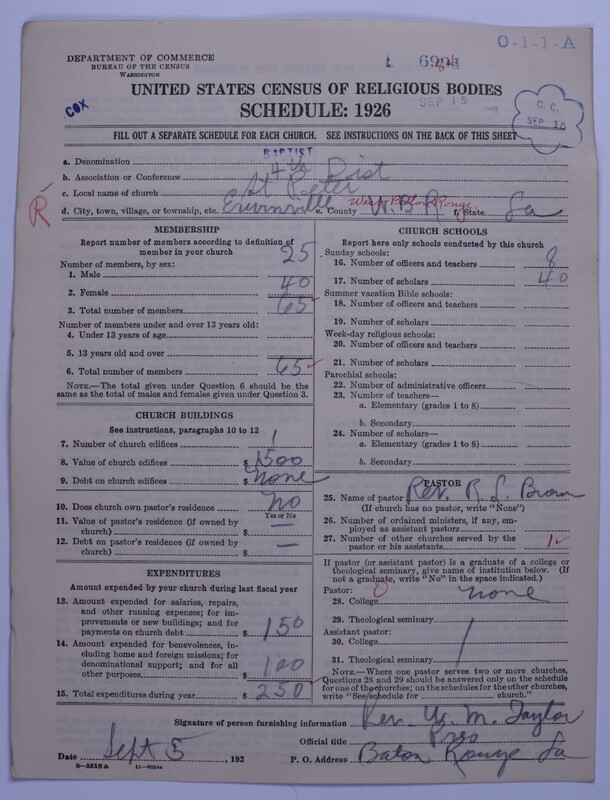 O-1-1-A
DEPARTMENT OF COMMERCE
BUREAU OF THE CENSUS
WASHINGTON
UNITED STATES CENSUS OF RELIGIOUS BODIES
SCHEDULE: 1926
COX
SEP 15
C. C.
SEP 15
FILL OUT A SEPARATE SCHEDULE FOR EACH CHURCH. SEE INSTRUCTIONS ON THE BACK OF THIS SHEET
a. Denomination BAPTIST
b. Association or Conference 4th Dist
c. Local name of church St Peter
R
d. City, town, village, or township, etc. Erwinville e. County W. B. R. West Baton Rouge f. State La
MEMBERSHIP
Report number of members according to definition of member in your church
Number of members, by sex:
1. Male 25
2. Female 40
3. Total number of members 65
Number of members under and over 13 years old:
4. Under 13 years of age
5. 13 years old and over
6. Total number of members 65
NOTE.—The total given under Question 6 should be the same as the total of males and females given under Question 3.
CHURCH BUILDINGS
See instructions, paragraphs 10 to 12
7. Number of church edifices 1
8. Value of church edifices $ 1500
9. Debt on church edifices $ None
10. Does church own pastor's residence? no
Yes or No
11. Value of pastor's residence (if owned by church) $ —
12. Debt on pastor's residence (if owned by church) $ —
EXPENDITURES
Amount expended by your church during last fiscal year
13. Amount expended for salaries, repairs, and other running expenses; for improvements or new buildings; and for payments on church debt $ 150
14. Amount expended for benevolences, including home and foreign missions; for denominational support; and for all other purposes $ 100
15. Total expenditures during year $ 250
CHURCH SCHOOLS
Report here only schools conducted by this church
Sunday schools:
16. Number of officers and teachers 8
17. Number of scholars 40
Summer vacation Bible schools:
18. Number of officers and teachers
19. Number of scholars
Week-day religious schools:
20. Number of officers and teachers
21. Number of scholars
Parochial schools:
22. Number of administrative officers
23. Number of teachers—
a. Elementary (grades 1 to 8)
b. Secondary
24. Number of scholars—
a. Elementary (grades 1 to 8)
b. Secondary
PASTOR
25. Name of pastor Rev. R. L. Brown
(If church has no pastor, write "None")
26. Number of ordained ministers, if any, employed as assistant pastors
27. Number of other churches served by the pastor or his assistants 1
If pastor (or assistant pastor) is a graduate of a college or theological seminary, give name of institution below. (If not a graduate, write "No" in the space indicated.)
Pastor: 0
28. College none
29. Theological seminary
Assistant pastor:
30. College
31. Theological seminary
NOTE.—Where one pastor serves two or more churches, Questions 28 and 29 should be answered only on the schedule for one of the churches; on the schedules for the other churches, write "See schedule for church."
Signature of person furnishing information Rev. W. M. Taylor
Official title Pres
Date Sept 5, 192 P. O. Address Baton Rouge La
8-5518a 11-9054a